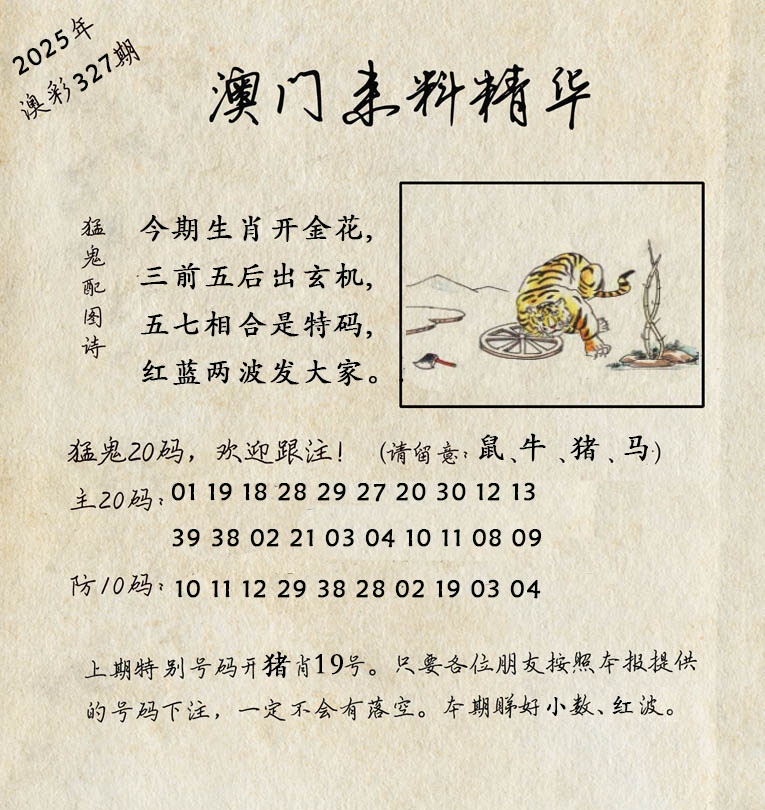 2025年
澳彩327期
澳门来料精华
猛鬼配图诗
今期生肖开金花，
三前五后出玄机，
五七相合是特码，
红蓝两波发大家。
猛鬼20码，欢迎跟注！（请留意：鼠、牛、猪、马）
主20码：01 19 18 28 29 27 20 30 12 13
39 38 02 21 03 04 10 11 08 09
防10码：10 11 12 29 38 28 02 19 03 04
上期特别号码开猪肖19号。只要各位朋友按照本报提供
的号码下注，一定不会有落空。本期睇好小数、红波。